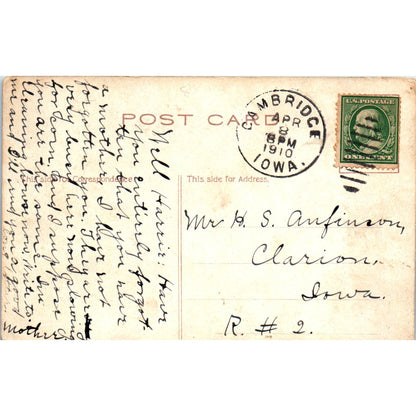 POST CARD
CAMBRIDGE
APR
8
6PM
1910
IOWA.
U.S. POSTAGE
ONE CENT
This side for Correspondence
This side for Address.
Well Harrie. Have
you entirely forgot-
ten that you have
a mother. I have not
forgotten you. They are
very busy here now plowing
for corn and suppose
you are the same. Im
Mother
Mr H. S. Anfinson,
Clarion,
Iowa.
R. # 2.